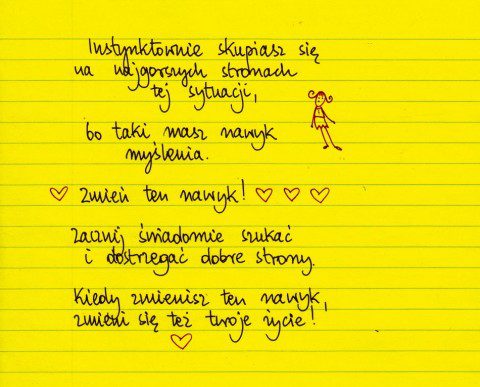 Instynktownie skupiasz się
na najgorszych stronach
tej sytuacji,
bo taki masz nawyk
myślenia.
Zmień ten nawyk!
Zacznij świadomie szukać
i dostrzegać dobre strony.
Kiedy zmienisz ten nawyk,
zmieni się też twoje życie!